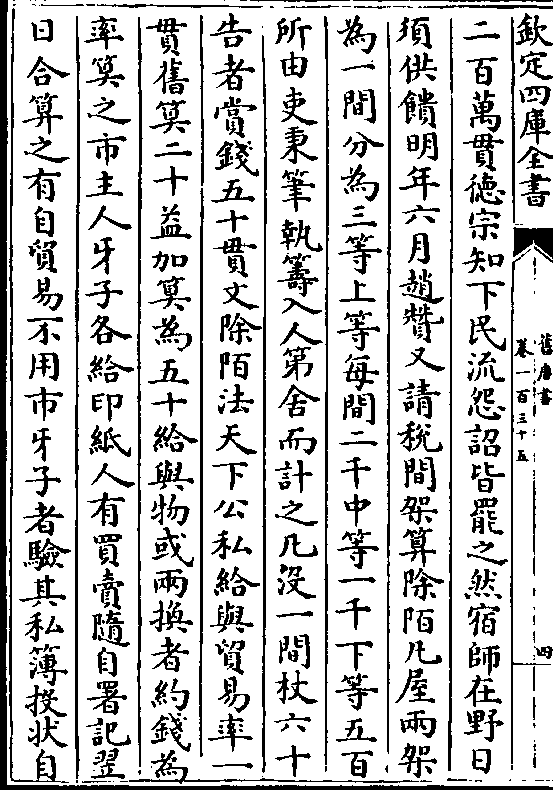 欽定四庫全書
舊唐書
卷一百三十五
四
二百萬貫徳宗知下民流怨詔皆罷之然宿師在野日
須供饋明年六月趙贊又請稅間架算除陌凡屋兩架
為一間分為三等上等每間二千中等一千下等五百
所由吏秉筆執籌入人第舍而計之凡沒一間杖六十
告者賞錢五十貫文除陌法天下公私給與貿易率一
貫舊筭二十益加筭為五十給與物或兩換者約錢為
率筭之市主人牙子各給印紙人有買賣隨自署記翌
日合算之有自貿易不用市牙子者驗其私簿投狀自